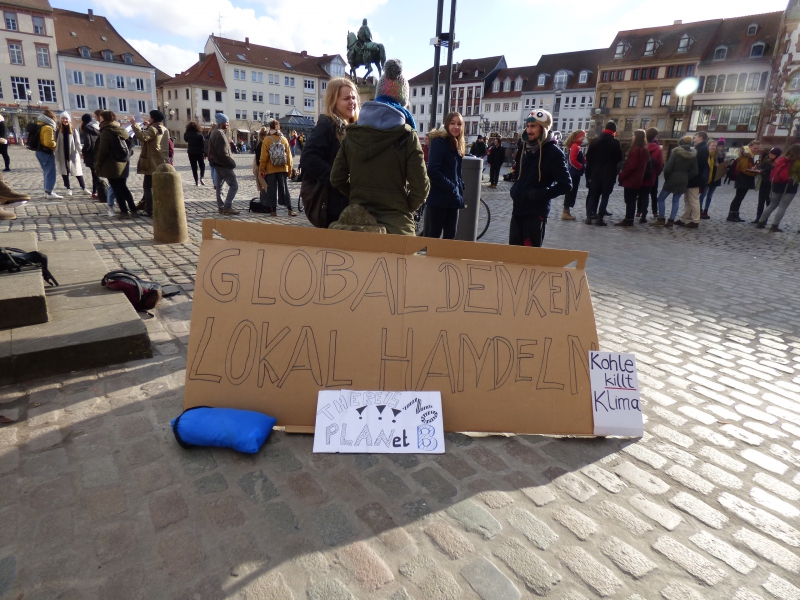 GLOBAL DENKEN
LOKAL HANDELN
THERE IS
PLANet B
Kohle
killt
Klima